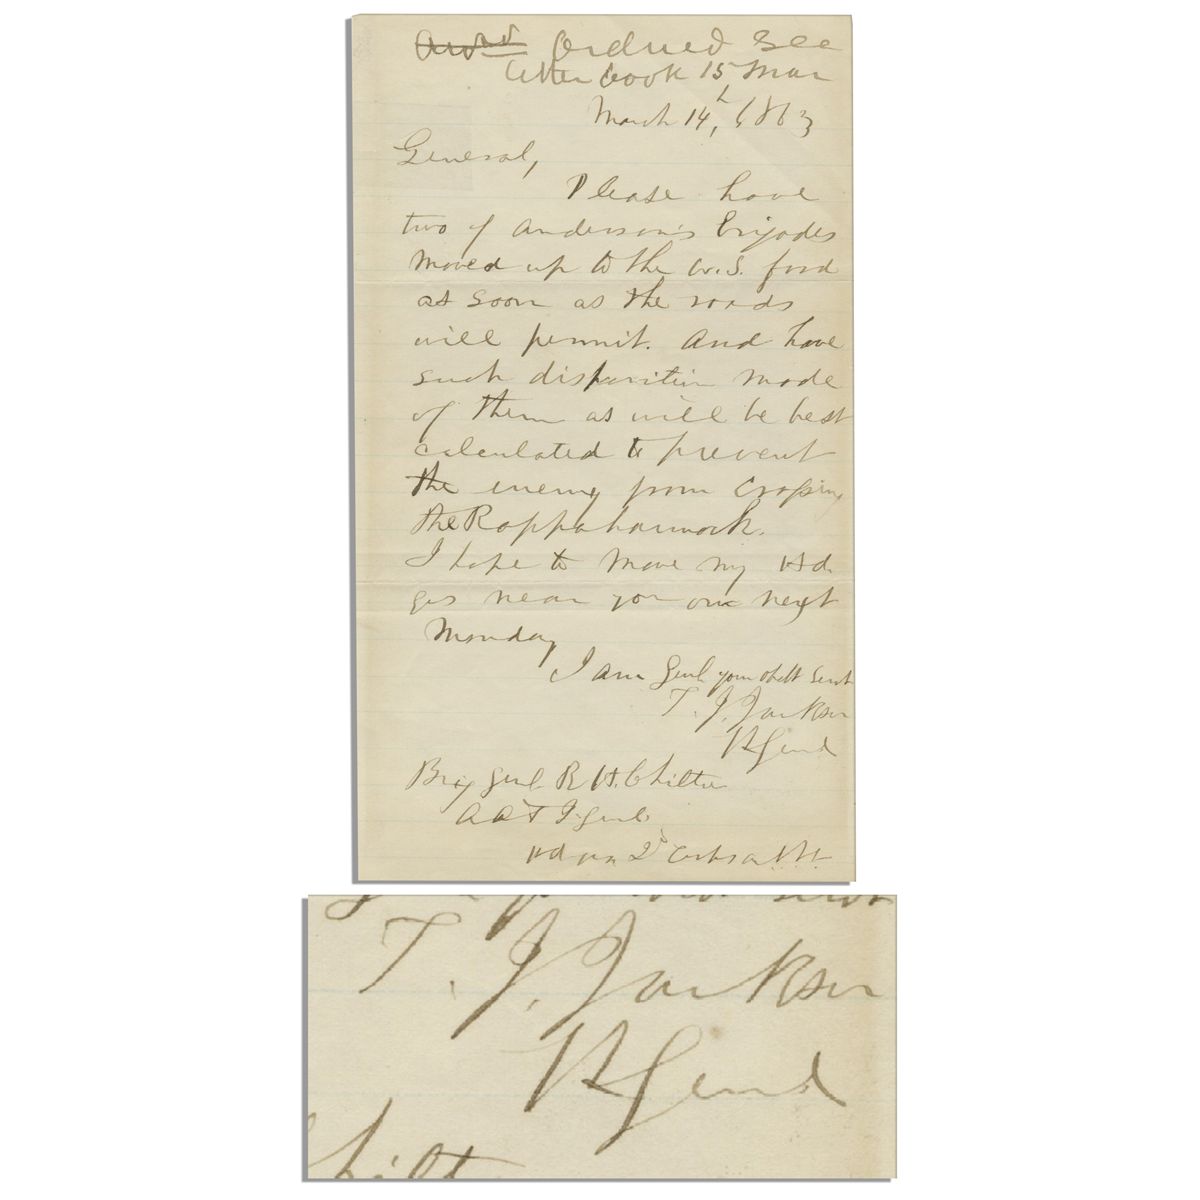 Ansd Ordered See
Letter book 15 Mar
March 14th, 1863
General,
Please have
two of Anderson's brigades
moved up to the U.S. ford
as soon as the roads
will permit. And have
such disposition made
of them as will be best
calculated to prevent
the enemy from crossing
the Rappahannock.
I hope to move my Hd.
qrs near you on next
Monday
I am Genl your obdt servt
T. J. Jackson
Lt Genl
Brig Genl R. H. Chilton
A A & I. Genl.
Hd qrs 2d Corps
T. J. Jackson
Lt Genl